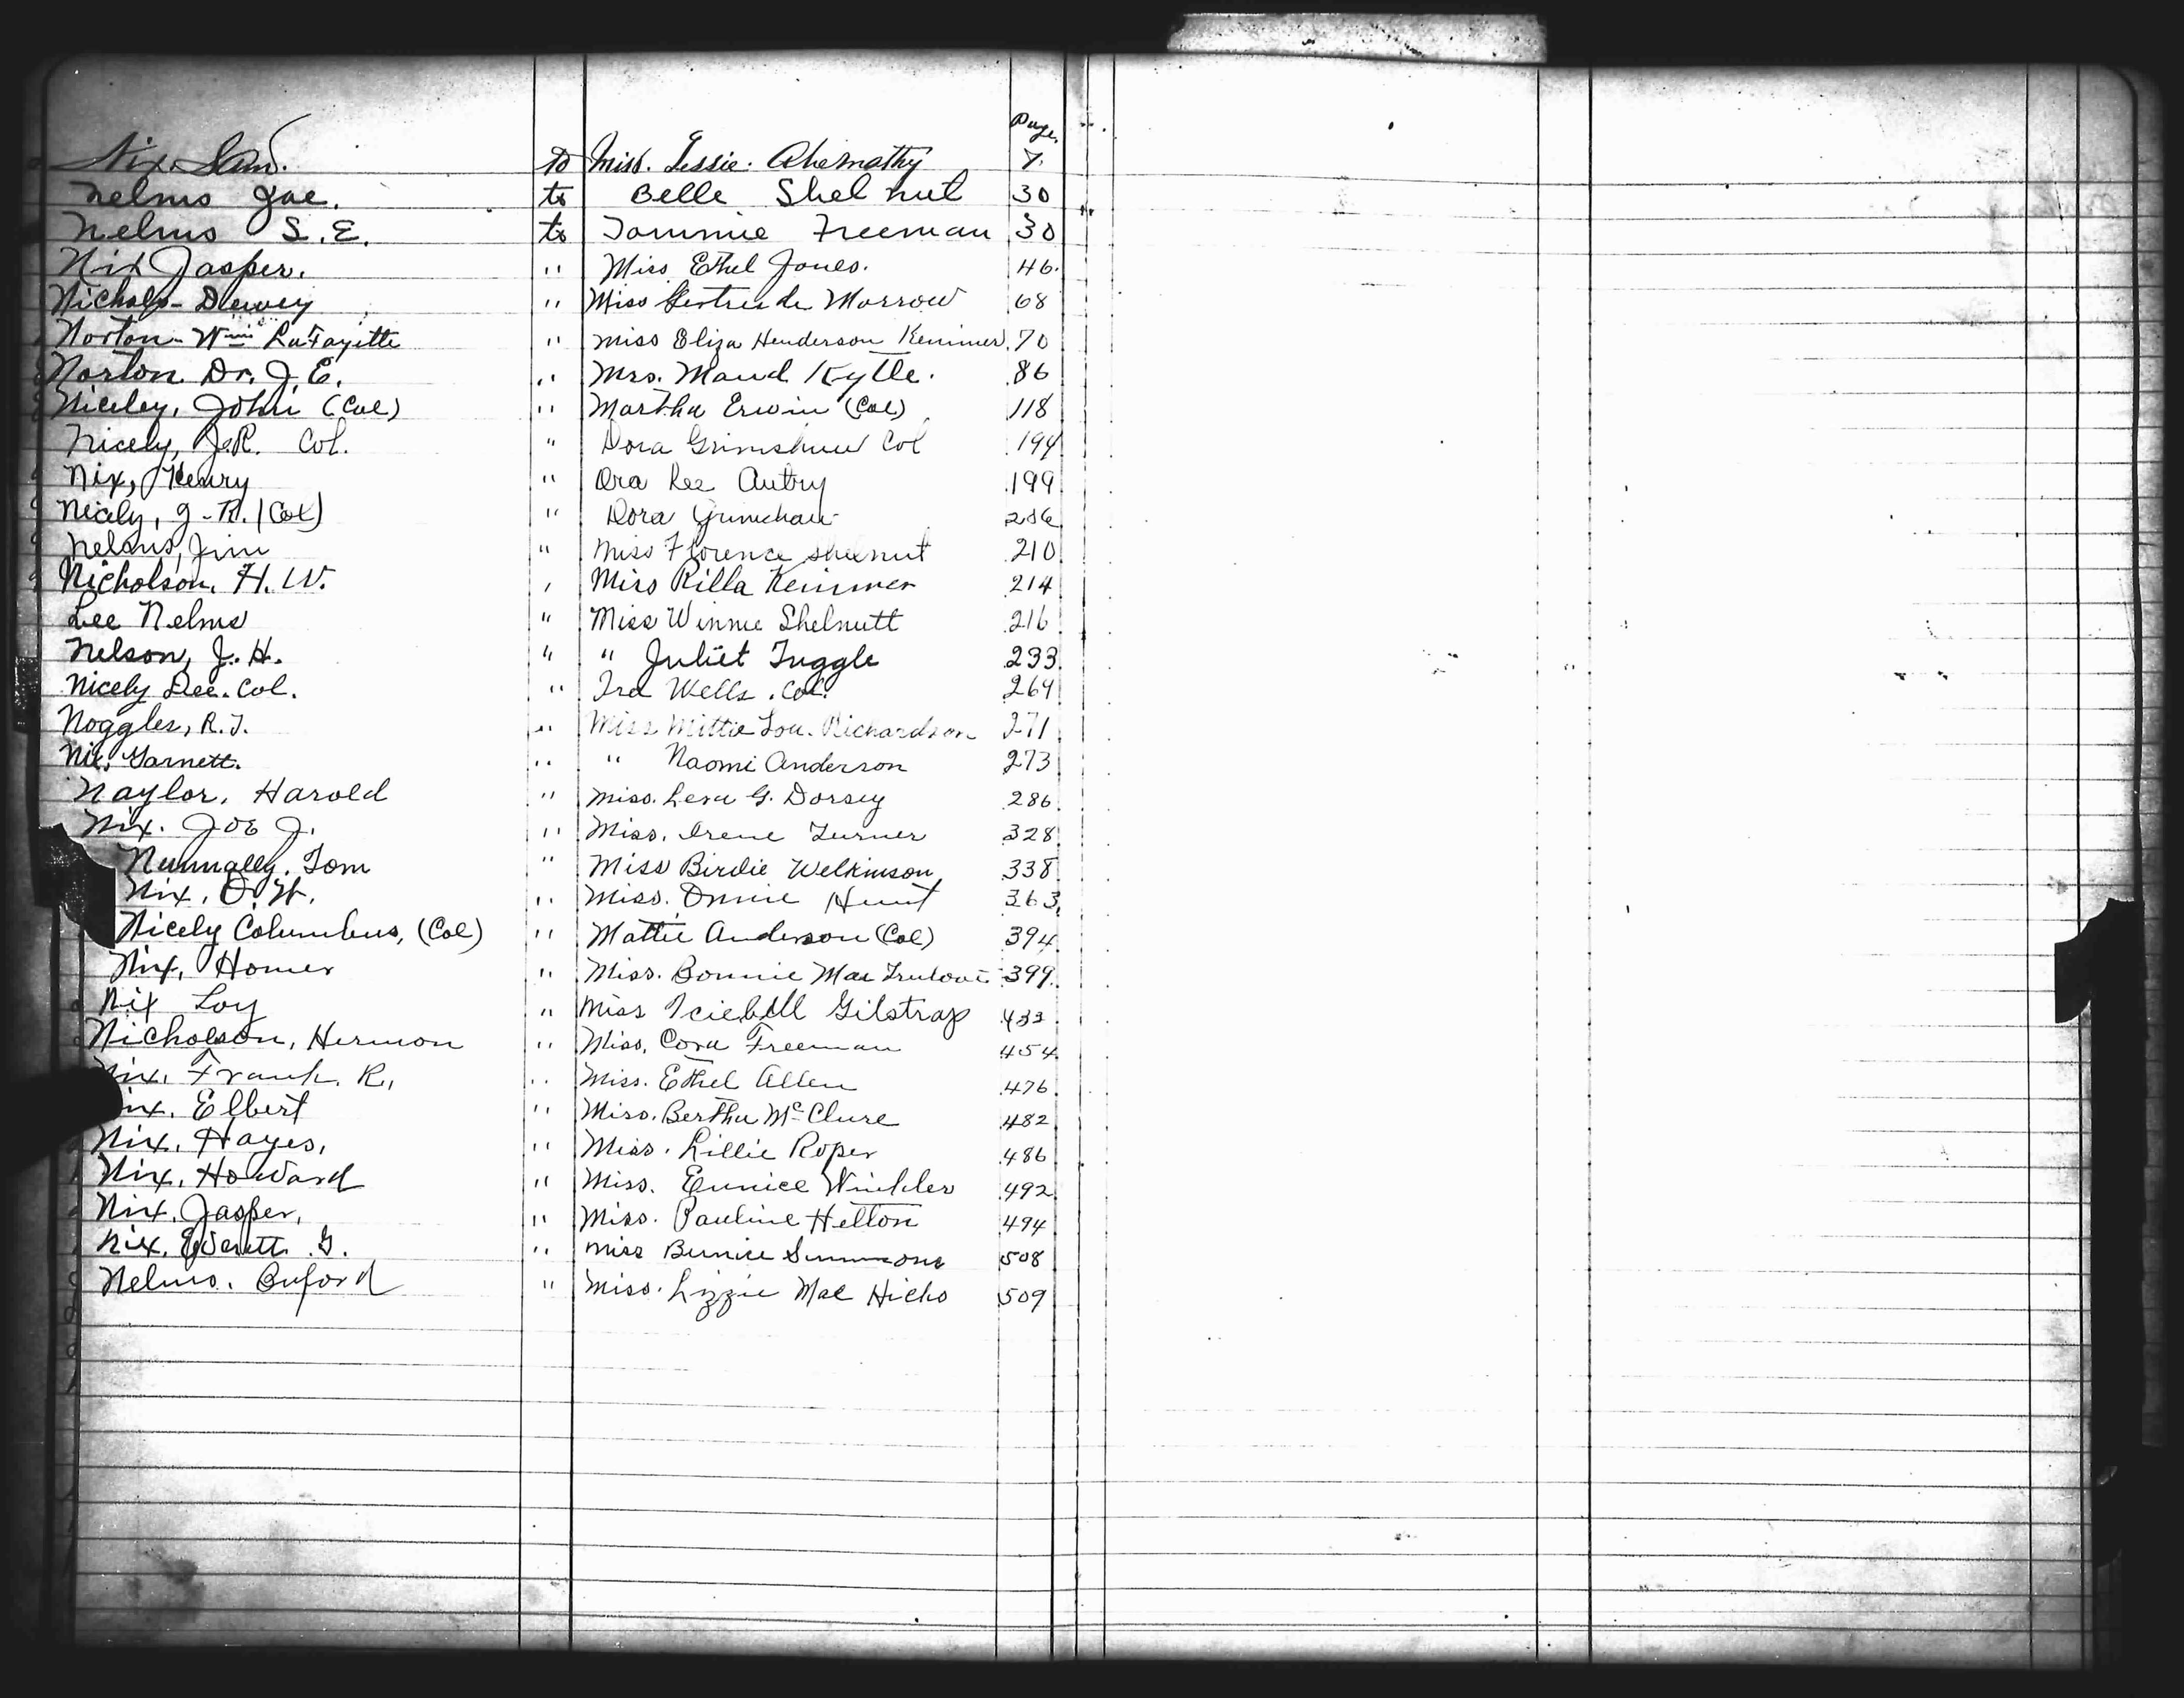 Page
Nix Sam. to Miss. Lessie. Abernathy 7.
Nelms Joe. to Belle Shelnut 30
Nelms S.E. to Tommie Freeman 30
Nix Jasper. " Miss Ethel Jones. 46.
Nichols - Dewey " Miss Gertrude Morrow 68
Norton - Wm LaFayette " Miss Eliza Henderson Kemmer. 70
Norton Dr. J.E. " Mrs. Maud Kytle. 86
Niceley, John (Col) " Martha Erwin (Col) 118
Nicely, J.R. Col. " Dora Grimshaw Col 194
Nix, Henry " Ora Lee Autry 199
Nicely, J-R. (Col) " Dora Grimshaw 206
Nelms, Jim " Miss Florence Shelnut 210
Nicholson, H. W. " Miss Rilla Kemmer 214
Lee Nelms " Miss Winnie Shelnutt 216
Nelson, J. H. " " Juliet Tuggle 233
Nicely Dee. Col. " Ira Wells. Col. 264
Noggles, R.J. " Miss Mittie Lou. Richardson 271
Nix. Garnett. " " Naomi Anderson 273
Naylor, Harold " Miss. Lera G. Dorsey 286
Nix. Joe J. " Miss. Irene Turner 328
Nunnally. Tom " Miss Birdie Welkinson 338
Nix, O.W. " Miss. Onnie Hunt 363
Nicely Columbus, (Col) " Mattie Anderson (Col) 394
Nix, Homer " Miss. Bonnie Mae Trulove 399
Nix Loy " Miss Iciebell Gilstrap 433
Nicholson, Hermon " Miss. Cora Freeman 454
Nix. Frank. R, " Miss. Ethel Allen 476
Nix. Elbert " Miss. Bertha McClure 482
Nix, Hayes, " Miss. Lillie Roper 486
Nix, Howard " Miss. Eunice Winkler 492
Nix, Jasper, " Miss. Pauline Helton 494
Nix, Everett G. " Miss Bernice Simmons 508
Nelms. Buford " Miss. Lizzie Mae Hicks 509